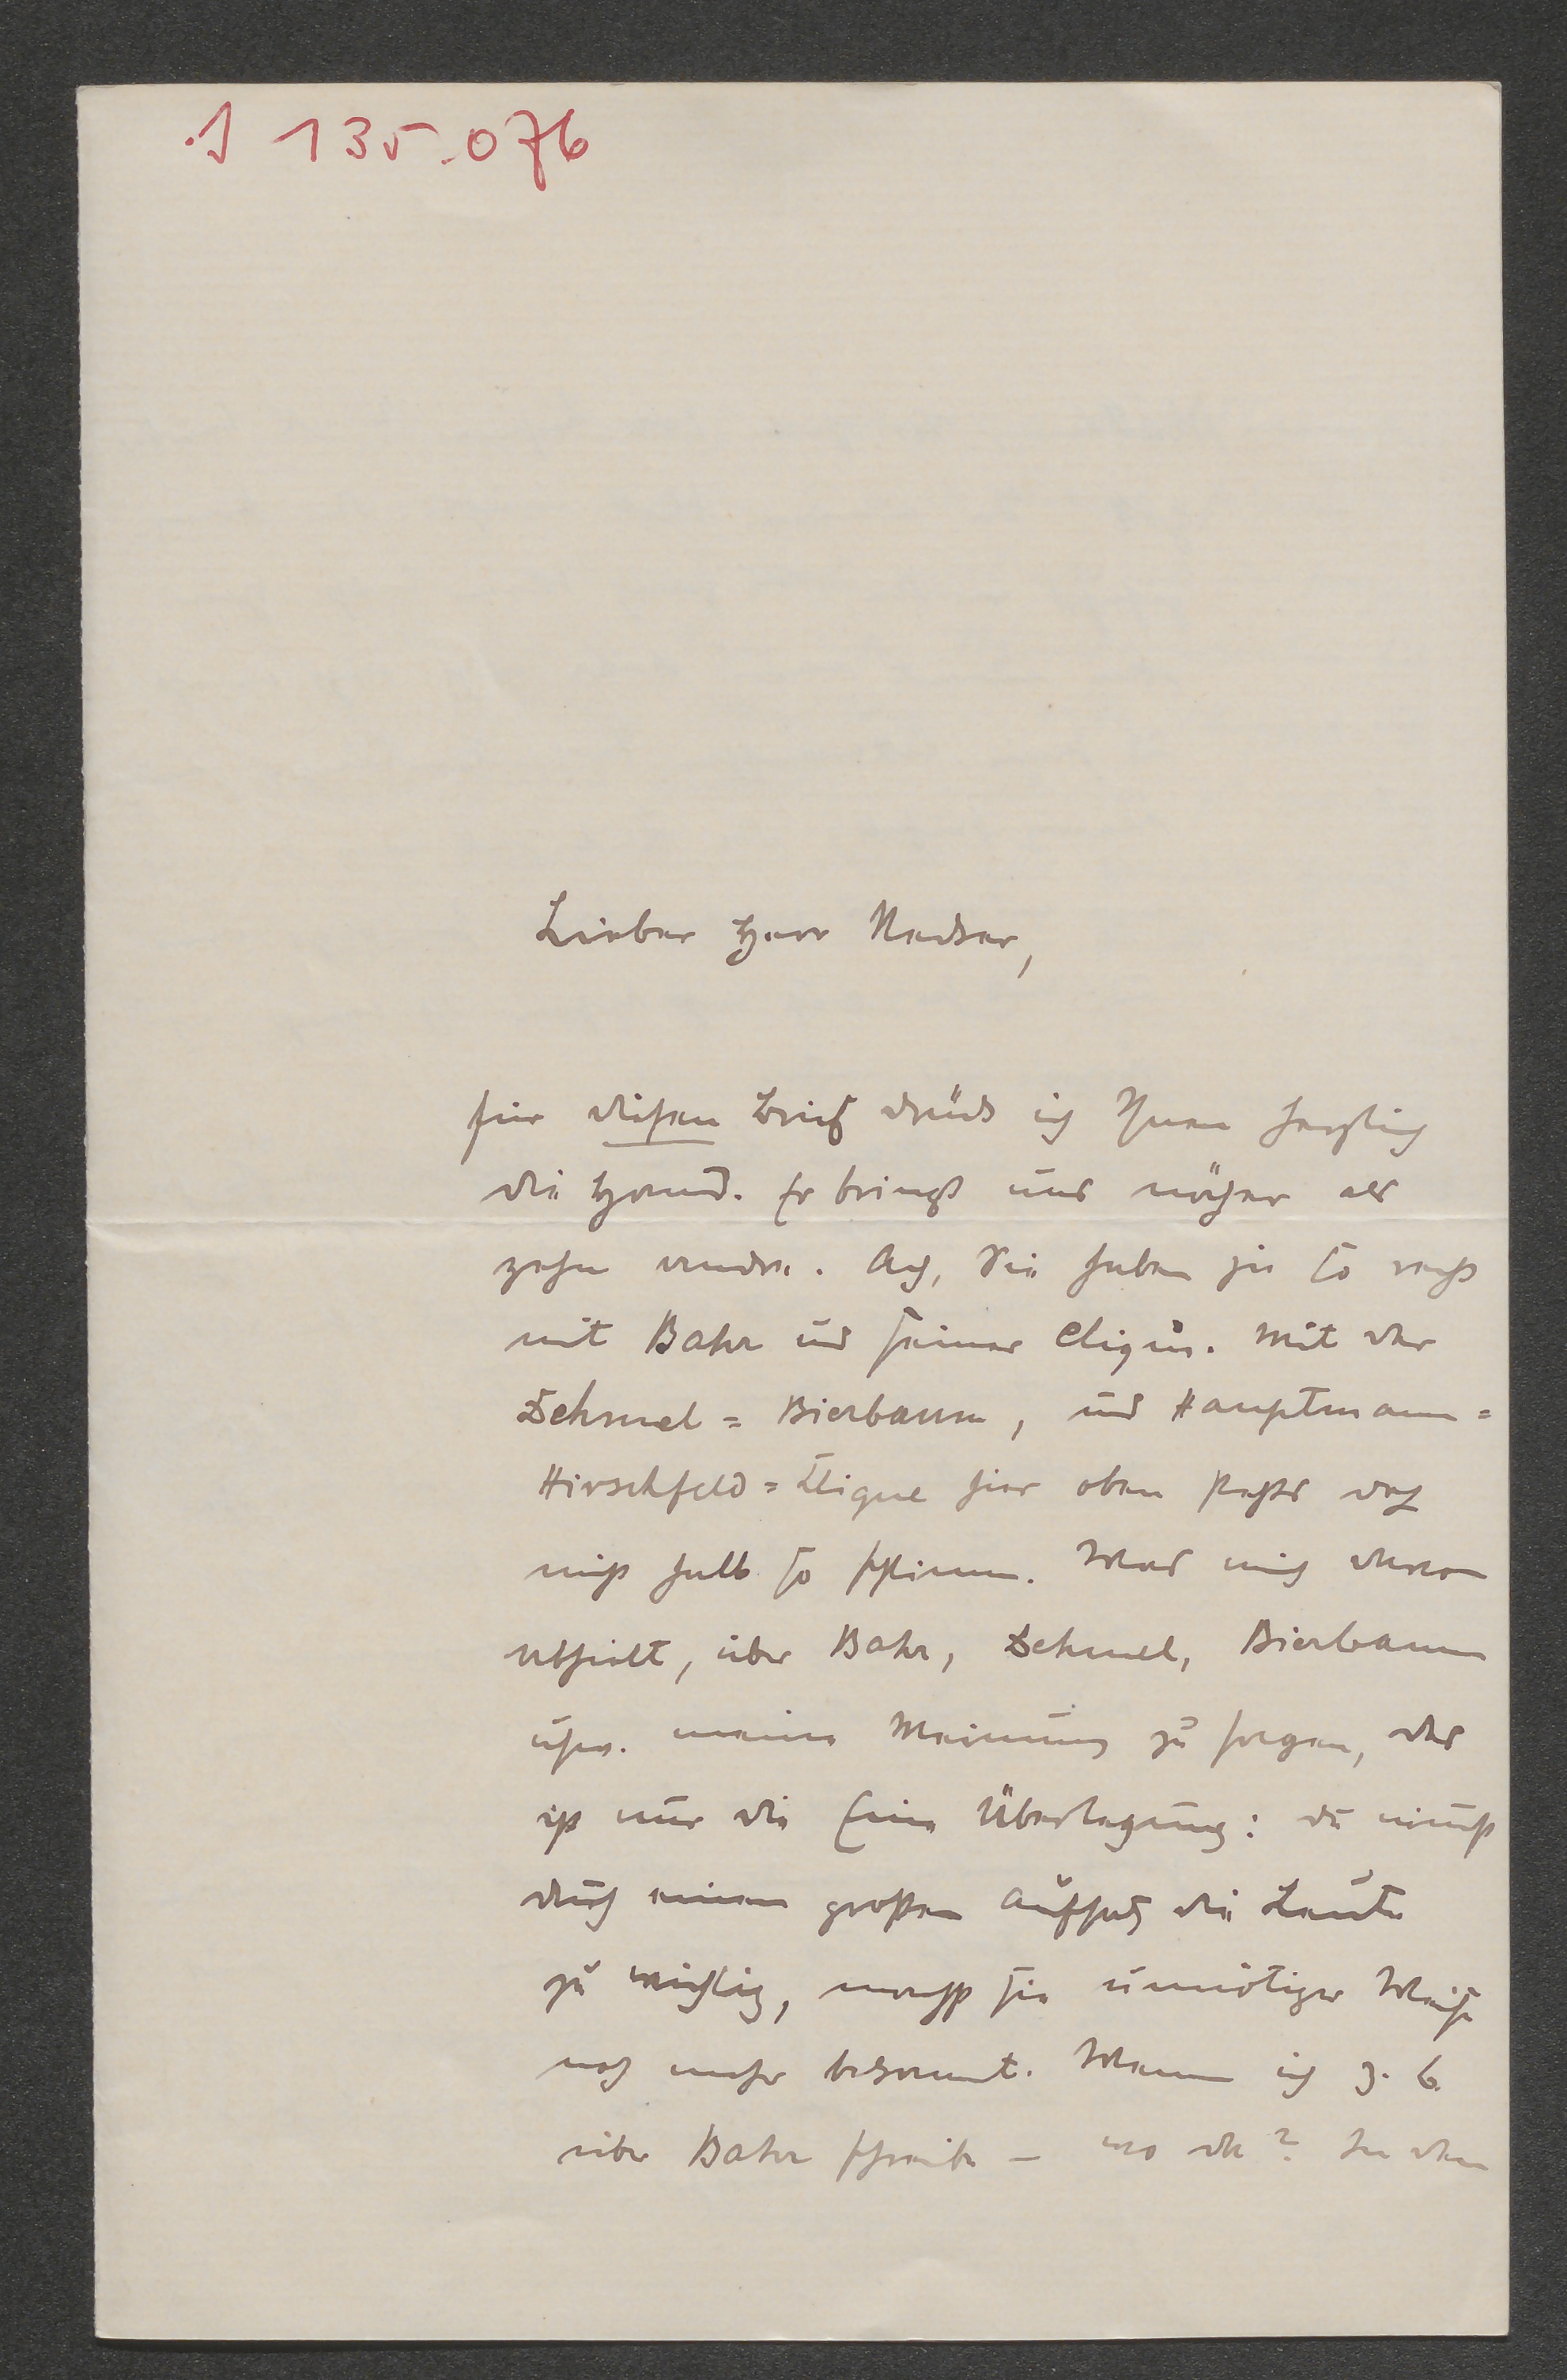 J 135.076
Lieber Herr Necker,
für diesen Brief drück ich Ihnen herzlich
die Hand. Er bringt uns näher als
zehn andre. Ach, Sie haben ja so recht
mit Bahr und seiner Clique. Mit der
Dehmel=Bierbaum, und Hauptmann=
Hirschfeld=Clique hier oben steht's doch
nicht halb so schlimm. Was mich davon
abhielt, über Bahr, Dehmel, Bierbaum
usw. meine Meinung zu sagen, das
ist nur die Eine Überlegung: du nimmst
durch einen großen Aufsatz die Leute
zu wichtig, machst sie unnötiger Weise
noch mehr bekannt. Wenn ich z. B.
über Bahr schreibe – wo da? In den